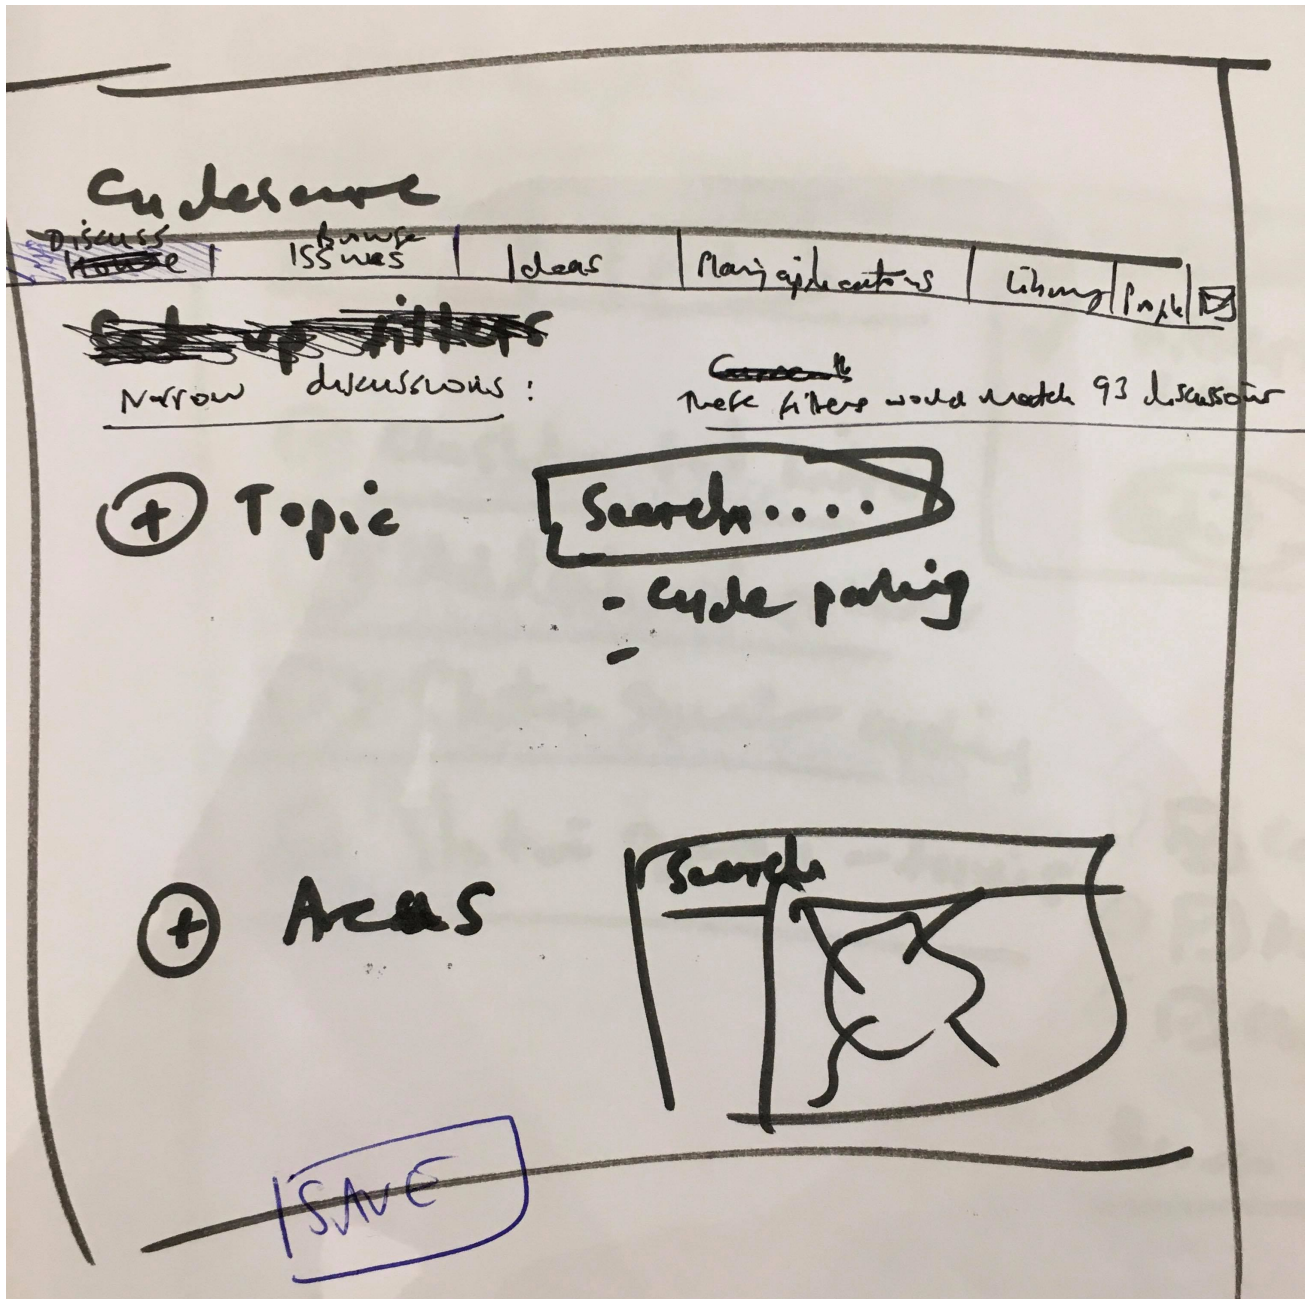 Cyclescape
Discuss
Home
browse
Issues
Ideas
Planning applications
Library
People
Set up filters
Narrow discussions:
These filters would match 93 discussions
+ Topic
Search....
- Cycle parking
-
+ Areas
Search
SAVE